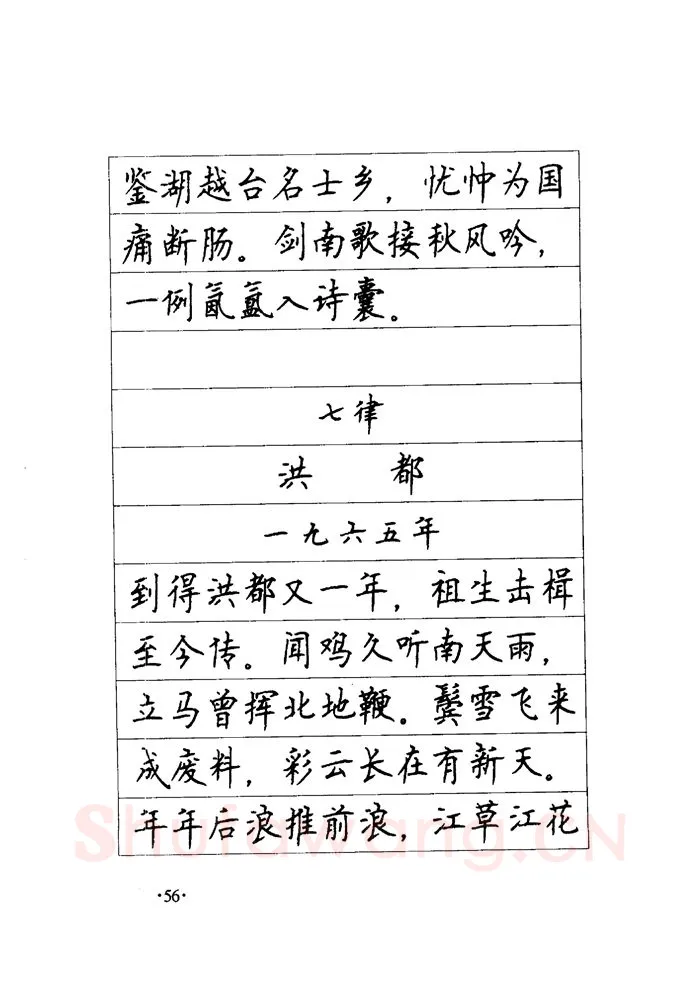 鉴湖越台名士乡，忧忡为国
痛断肠。剑南歌接秋风吟，
一例氤氲入诗囊。
七律
洪 都
一九六五年
到得洪都又一年，祖生击楫
至今传。闻鸡久听南天雨，
立马曾挥北地鞭。鬓雪飞来
成废料，彩云长在有新天。
年年后浪推前浪，江草江花
Shufawang.CN
·56·